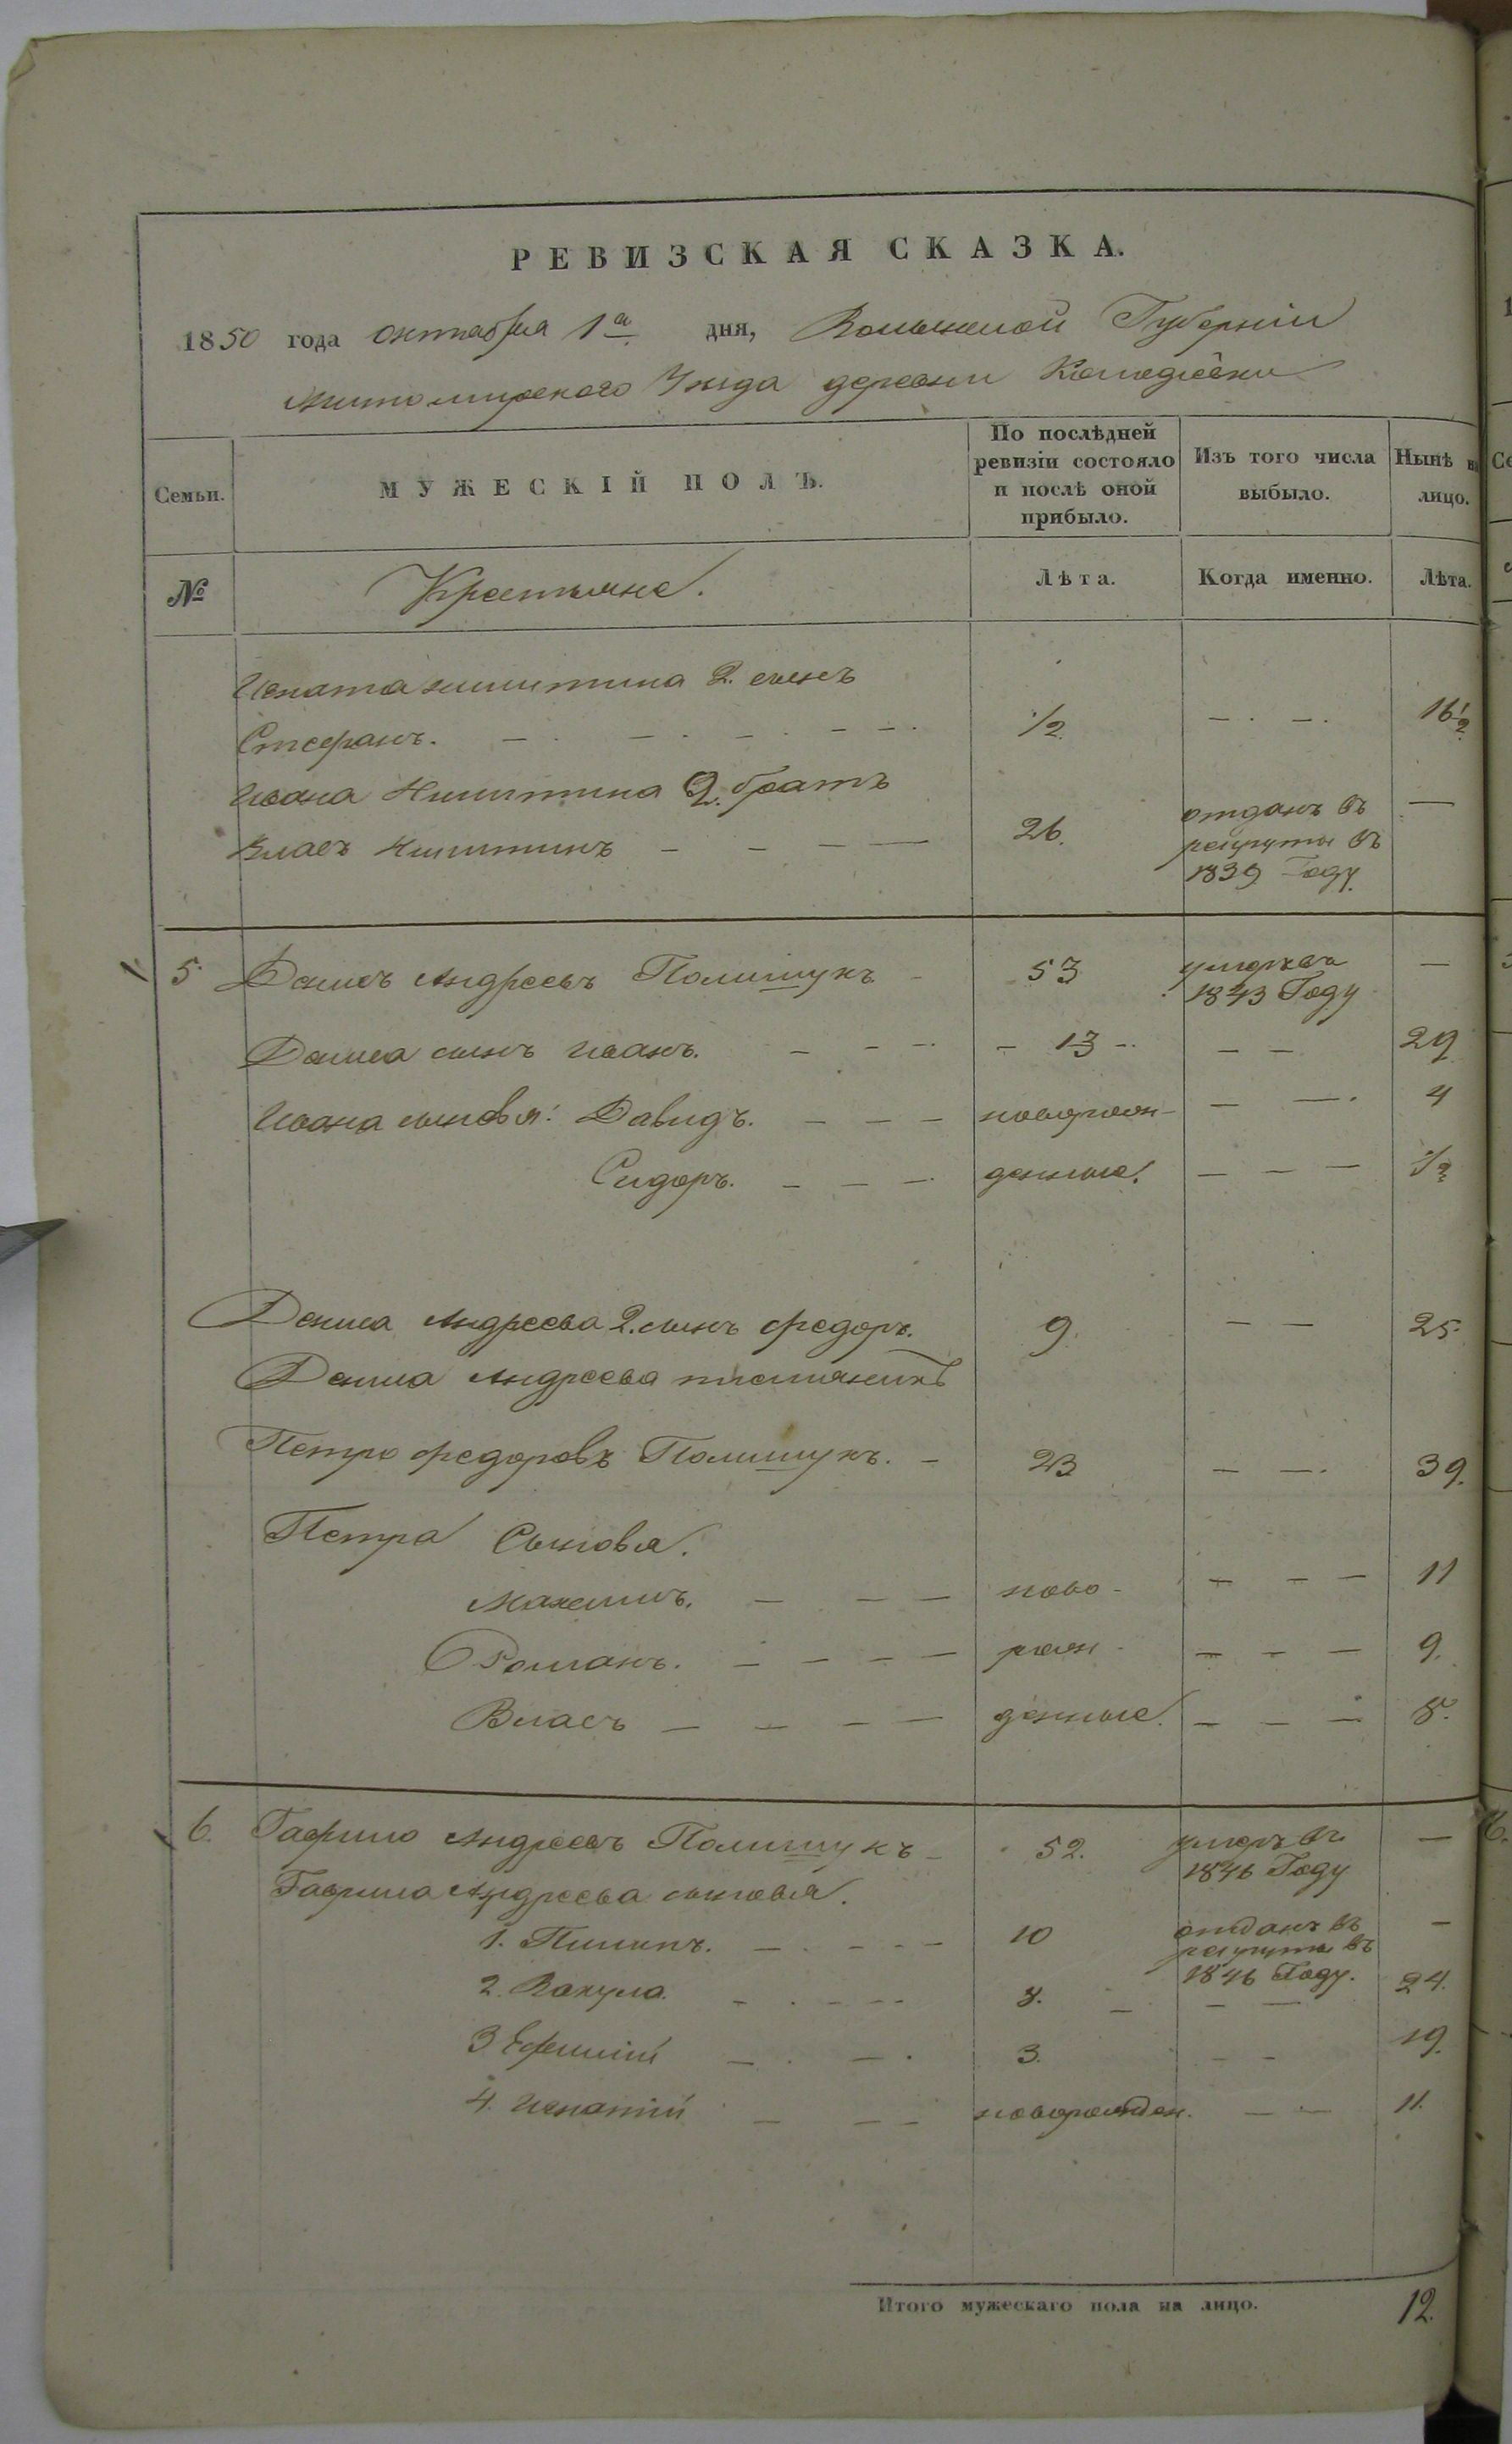 РЕВИЗСКАЯ СКАЗКА.
1850 года октября 1го дня, Волынской Губерніи
Житомирскаго Уѣзда деревни
Семьи.
МУЖЕСКІЙ ПОЛЪ.
По послѣдней ревизіи состояло и послѣ оной прибыло.
Изъ того числа выбыло.
Нынѣ на лицо.
№
Крестьяне.
Лѣта.
Когда именно.
Лѣта.
Игната Никитина 2. сынъ
Стефанъ. 1/2 16 1/2
Ивана Никитина 2. братъ
Власъ Никитинъ 26. отданъ въ рекруты въ 1839 Году.
5 Денисъ Андреевъ Полищукъ 53 умеръ въ 1843 Году
Дениса сынъ Иванъ. 13 29
Ивана сыновья: Давидъ. новорож- 4
Сидоръ. денные. 1/2
Дениса Андреева 2. сынъ Федоръ. 9 25.
Дениса Андреева племяникъ
Петро Федоровъ Полищукъ. 23 39.
Петра Сыновья.
Максимъ. ново- 11
Романъ. рож- 9.
Власъ денные. 5.
6. Гаврило Андреевъ Полищукъ 52. умеръ въ 1846 Году
Гаврила Андреева сыновья.
1. Пилипъ. 10 отданъ въ рекруты въ 1846 Году.
2. Вакула. 8. 24.
3 Ефимій 3. 19.
4. Игнатій новорожден. 11.
Итого мужескаго пола на лицо. 12.